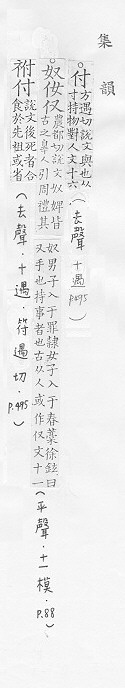 集韻
付 方遇切說文與也从
寸持物對人文十六
(去聲.十遇 P.495)
奴 仅 農都切說文奴婢皆
古之辠人引周禮其
奴男子入于辠隸女子入于舂藁徐鉉曰
又手也持事者也古从人或作仅文十一
(平聲.十一模.P.88)
祔付 說文後死者合
食於先祖或省
(去聲.十遇.符遇切.P.495)